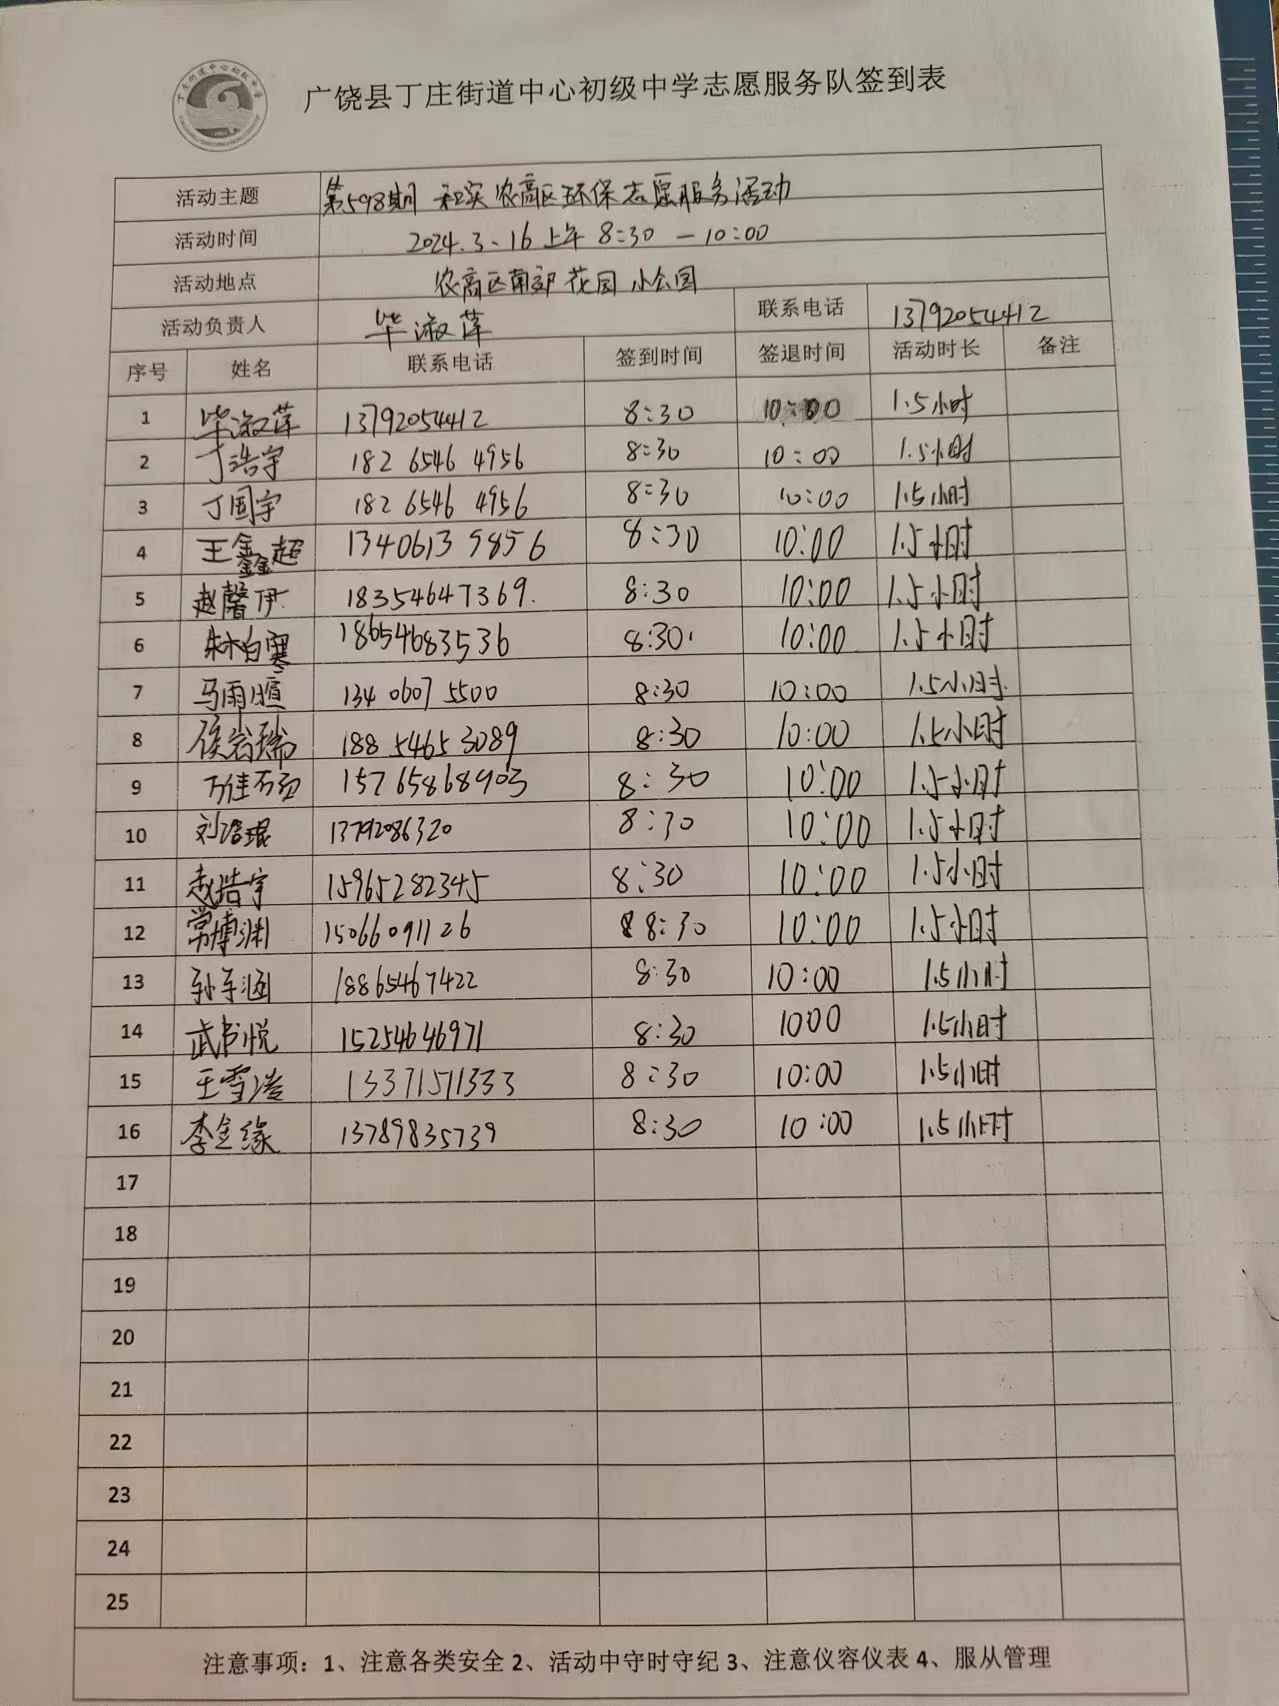 广饶县丁庄街道中心初级中学志愿服务队签到表
活动主题 第598期 和实农高区环保志愿服务活动
活动时间 2024.3.16上午 8:30 — 10:00
活动地点 农高区南郊花园小公园
活动负责人 毕淑萍 联系电话 13792054412
序号 姓名 联系电话 签到时间 签退时间 活动时长 备注
1 毕淑萍 13792054412 8:30 10:00 1.5小时
2 丁浩宇 182 6546 4956 8:30 10:00 1.5小时
3 丁国宇 182 6546 4956 8:30 10:00 1.5小时
4 王鑫超 13406139856 8:30 10:00 1.5小时
5 赵馨伊 18354647369. 8:30 10:00 1.5小时
6 18654683536 8:30 10:00 1.5小时
7 马雨暄 134 0607 5500 8:30 10:00 1.5小时
8 侯岩瑞 188 5465 3089 8:30 10:00 1.5小时
9 15765868903 8:30 10:00 1.5小时
10 刘浩琨 13792086320 8:30 10:00 1.5小时
11 赵浩宇 15965282345 8:30 10:00 1.5小时
12 常博渊 15066091126 8:30 10:00 1.5小时
13 孙子涵 18865467422 8:30 10:00 1.5小时
14 武书悦 15254646971 8:30 1000 1.5小时
15 王雪凌 13371571333 8:30 10:00 1.5小时
16 李金缘 13789835739 8:30 10:00 1.5小时
17
18
19
20
21
22
23
24
25
注意事项：1、注意各类安全 2、活动中守时守纪 3、注意仪容仪表 4、服从管理